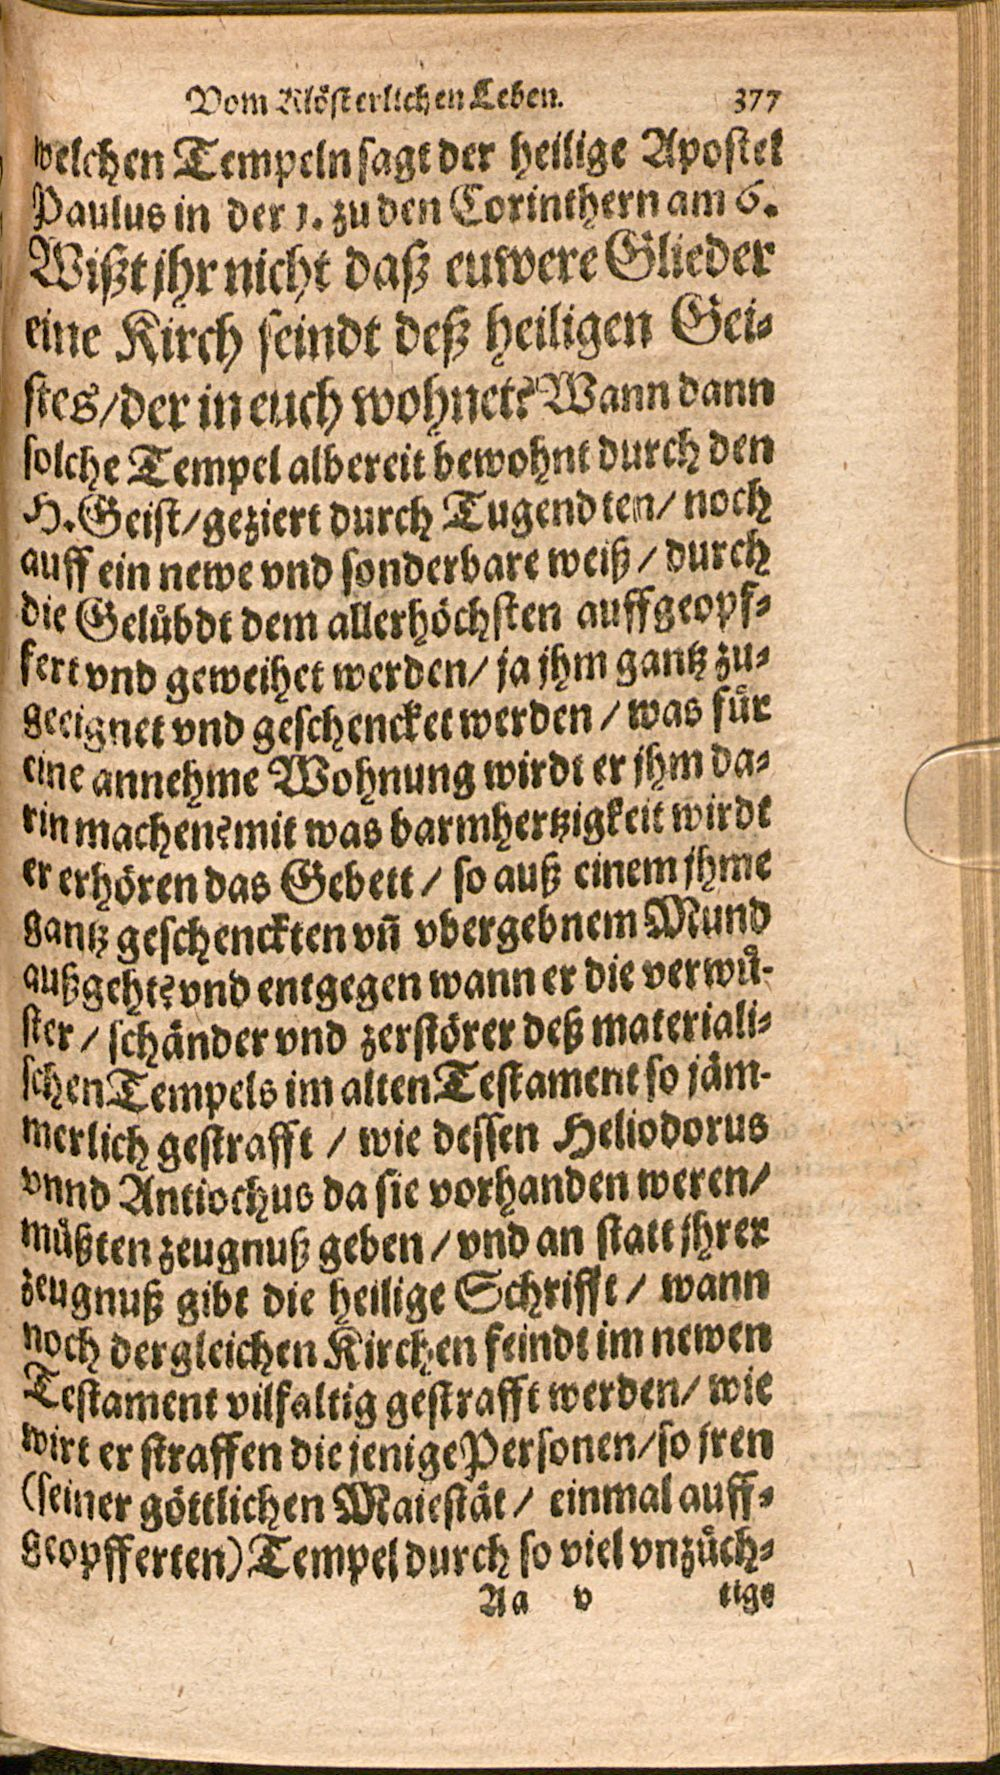 Vom Klösterlichen Leben. 377
welchen Tempeln sagt der heilige Apostel
Paulus in der 1. zu den Corinthern am 6.
Wißt jhr nicht daß euwere Glieder
eine Kirch seindt deß heiligen Gei-
stes/ der in euch wohnet? Wann dann
solche Tempel albereit bewohnt durch den
H. Geist/ geziert durch Tugendten/ noch
auff ein newe vnd sonderbare weiß / durch
die Gelůbdt dem allerhöchsten auffgeopf-
fert vnd geweihet werden/ ja jhm gantz zu-
geeignet vnd geschencket werden / was fůr
eine annehme Wohnung wirdt er jhm da-
rin machen? mit was barmhertzigkeit wirdt
er erhören das Gebett / so auß einem jhme
gantz geschenckten vñ vbergebnem Mund
außgeht? vnd entgegen wann er die verwů-
ster / schänder vnd zerstörer deß materiali-
schen Tempels im alten Testament so jäm-
merlich gestrafft / wie dessen Heliodorus
vnnd Antiochus da sie vorhanden weren/
můßten zeugnuß geben / vnd an statt jhrer
zeugnuß gibt die heilige Schrifft / wann
noch dergleichen Kirchen seindt im newen
Testament vilfaltig gestrafft werden/ wie
wirt er straffen die jenige Personen/ so jren
(seiner göttlichen Maiestät / einmal auff-
geopfferten) Tempel durch so viel vnzůch-
Aa v tige